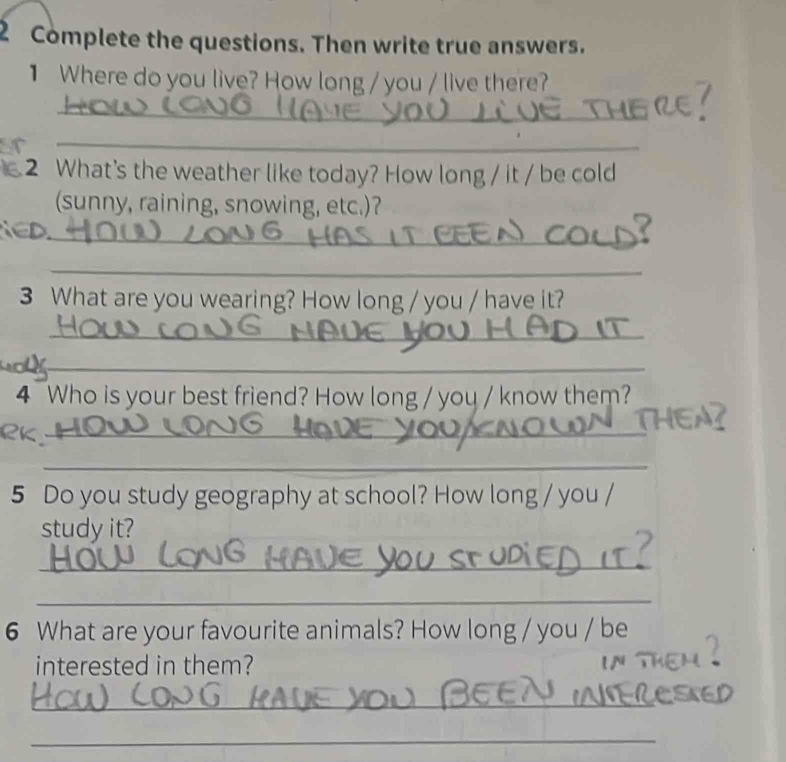 2 Complete the questions. Then write true answers.
1 Where do you live? How long / you / live there?
HOW LONG HAVE YOU LIVE THERE?
2 What's the weather like today? How long / it / be cold
(sunny, raining, snowing, etc.)?
HOW LONG HAS IT BEEN COLD?
3 What are you wearing? How long / you / have it?
HOW LONG HAVE YOU HAD IT
4 Who is your best friend? How long / you / know them?
HOW LONG HAVE YOU KNOWN THEM?
5 Do you study geography at school? How long / you /
study it?
HOW LONG HAVE YOU STUDIED IT?
6 What are your favourite animals? How long / you / be
interested in them?
HOW LONG HAVE YOU BEEN INTERESTED
IN THEM?